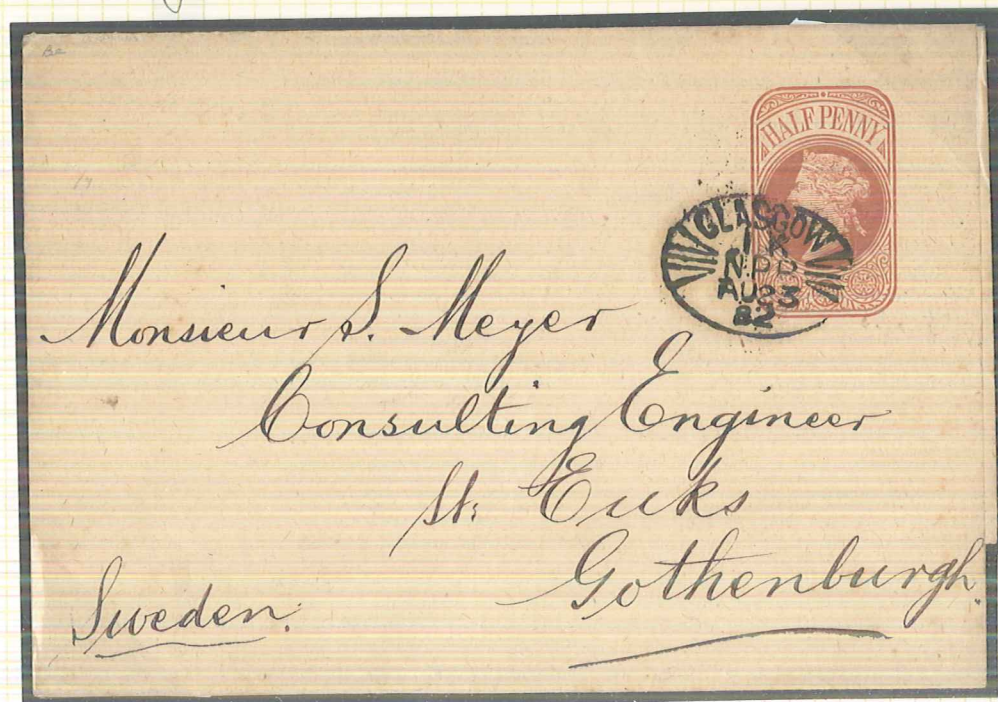 HALF PENNY
GLASGOW
1 K
N.P.D
AU 23
82
Monsieur S. Meyer
Consulting Engineer
St. Eriks
Gothenburgh.
Sweden.